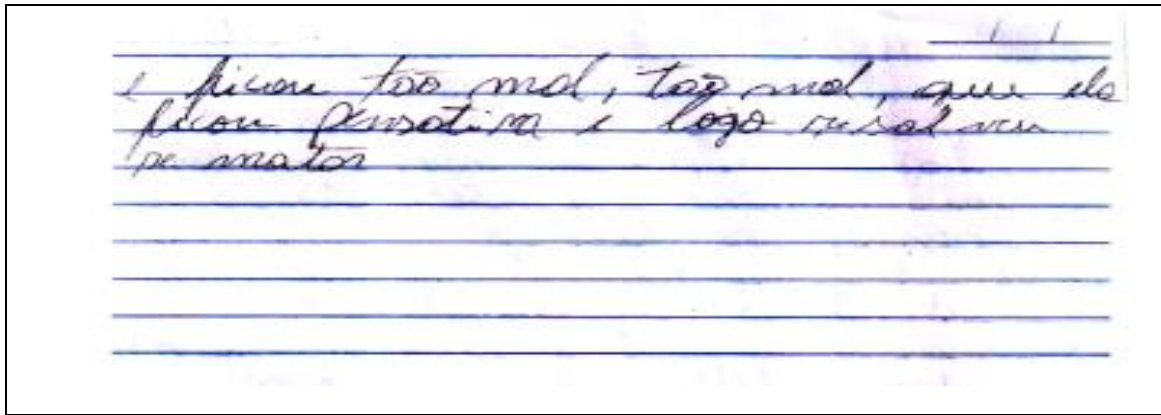 e ficou tão mal, tão mal, que ela
ficou pensativa e logo resolveu
se matar